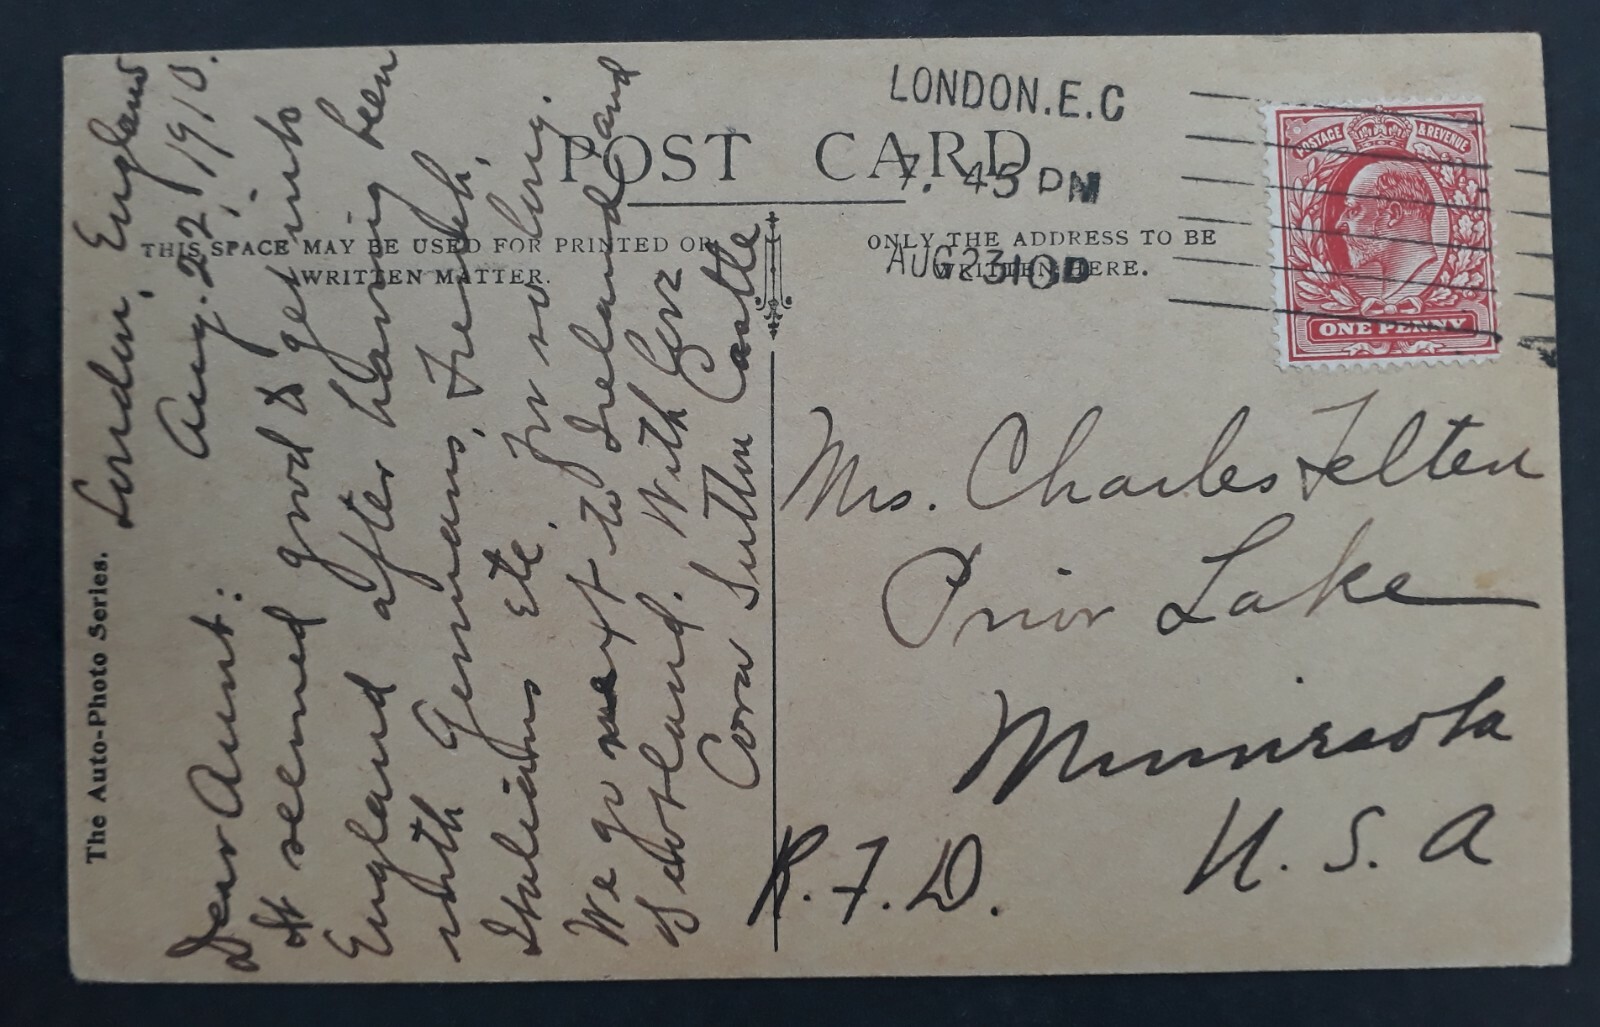 LONDON.E.C
7.45PM
AUG 23 10D
POST CARD
POSTAGE & REVENUE
ONE PENNY
THIS SPACE MAY BE USED FOR PRINTED OR
WRITTEN MATTER.
ONLY THE ADDRESS TO BE
WRITTEN HERE.
The Auto-Photo Series.
London, England
Aug. 22, 1910.
Dear Aunt:
It seemed good to get into
England after having been
with Germans, French,
Italians etc. for so long.
We go next to Ireland and
Scotland. With
Cora Sutton Castle
Mrs. Charles Felten
Prior Lake
Minnesota
R.F.D.
U.S.A